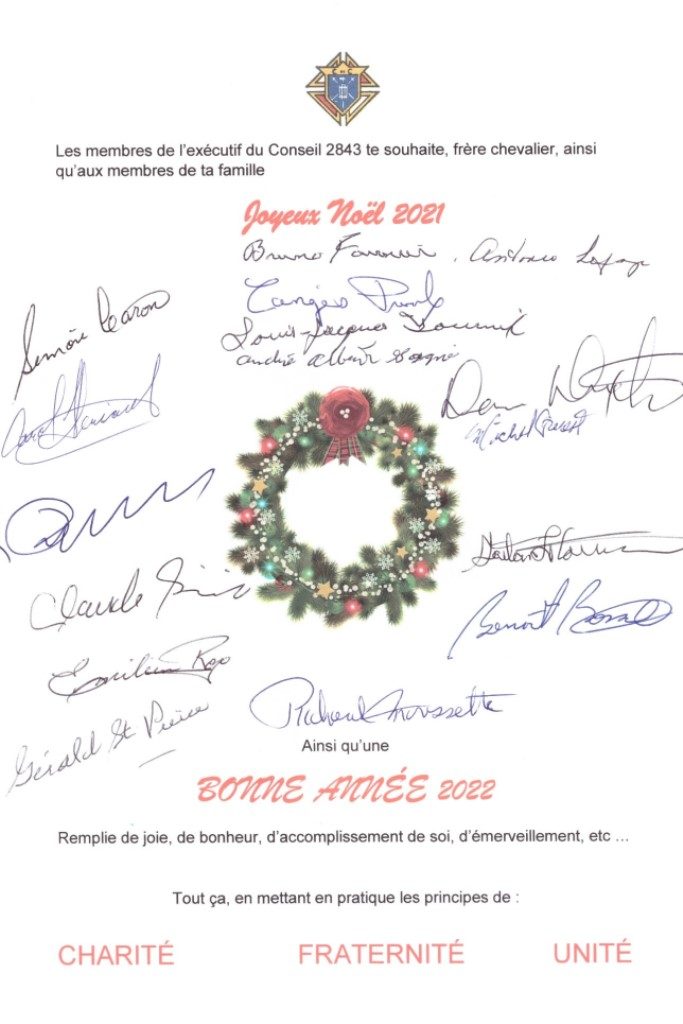 Les membres de l'exécutif du Conseil 2843 te souhaite, frère chevalier, ainsi
qu'aux membres de ta famille
Joyeux Noël 2021
Bruno Fournier, Antonio
Simon Caron
Louis-Jacques
André Albert Gagné
Dan
Michel
Claude
Benoît
Émilien Roy
Gérald St Pierre
Richard Moussette
Ainsi qu'une
BONNE ANNÉE 2022
Remplie de joie, de bonheur, d'accomplissement de soi, d'émerveillement, etc ...
Tout ça, en mettant en pratique les principes de :
CHARITÉ FRATERNITÉ UNITÉ